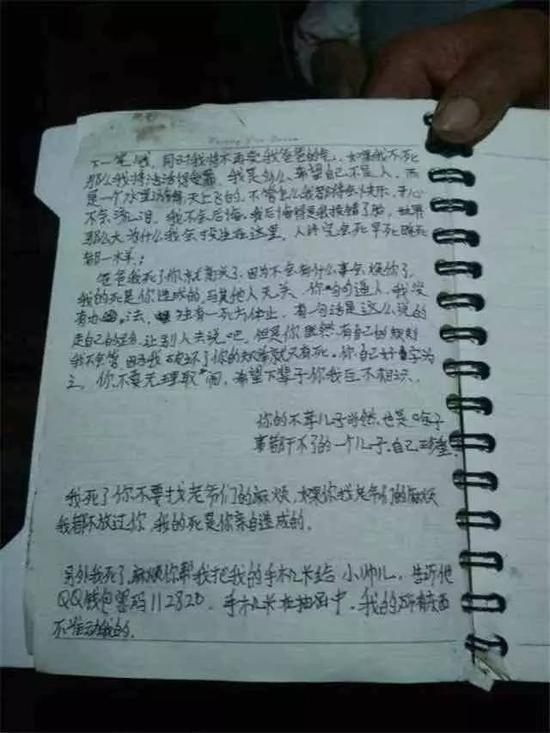 下一笔钱，同时我将不再受我爸爸的气，如果我不死
那么我将活活得受罪，我是多么希望自己不是人，而
是一个水里游的天上飞的，不管怎么我都将会快乐，开心
不会流泪，我不会后悔，我后悔得是我投错了胎，世界
那么大为什么我会投生在这里，人终究会死早死晚死
都一样；
爸爸我死了你就高兴了，因为不会有什么事会烦你了，
我的死是你造成的，与其他人无关，你的句句逼人，我没
有办法，唯有一死方休止，有一句话是这么说的
走自己的路，让别人去说吧，但是你既然有自己的规则
我不会管，因为我破坏了你的规则就只有死。你自己好自为
之，你不要无理取闹，希望下辈子你我互不相识。
你的不孝儿子当然也是啥子
事都干不了的一个儿子，自己珍重
我死了你不要找老爷们的麻烦，如果你找老爷们的麻烦
我都不放过你，我的死是你亲自造成的。
另外我死了，麻烦你帮我把我的手机卡给小帅儿，告诉他
QQ钱包密码112820，手机卡在抽屉中，我的所有东西
不准动我的.